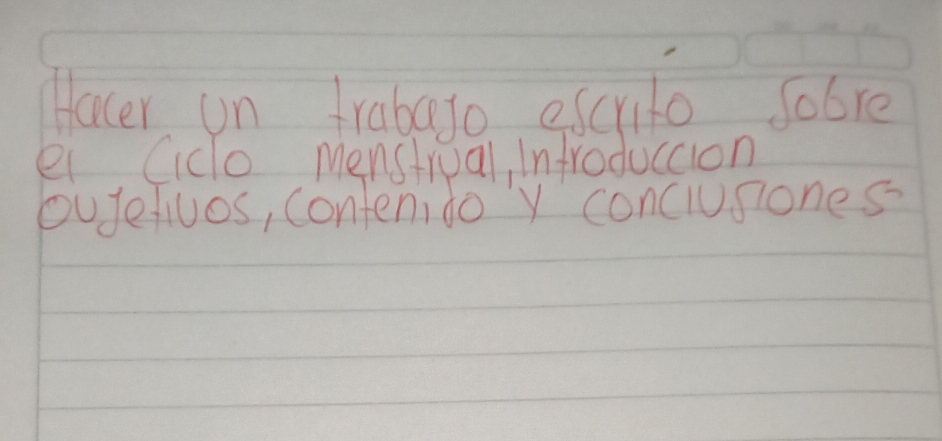 Hacer un trabajo escrito sobre
el ciclo menstrual, introduccion
oujetivos, contenido y conclusiones